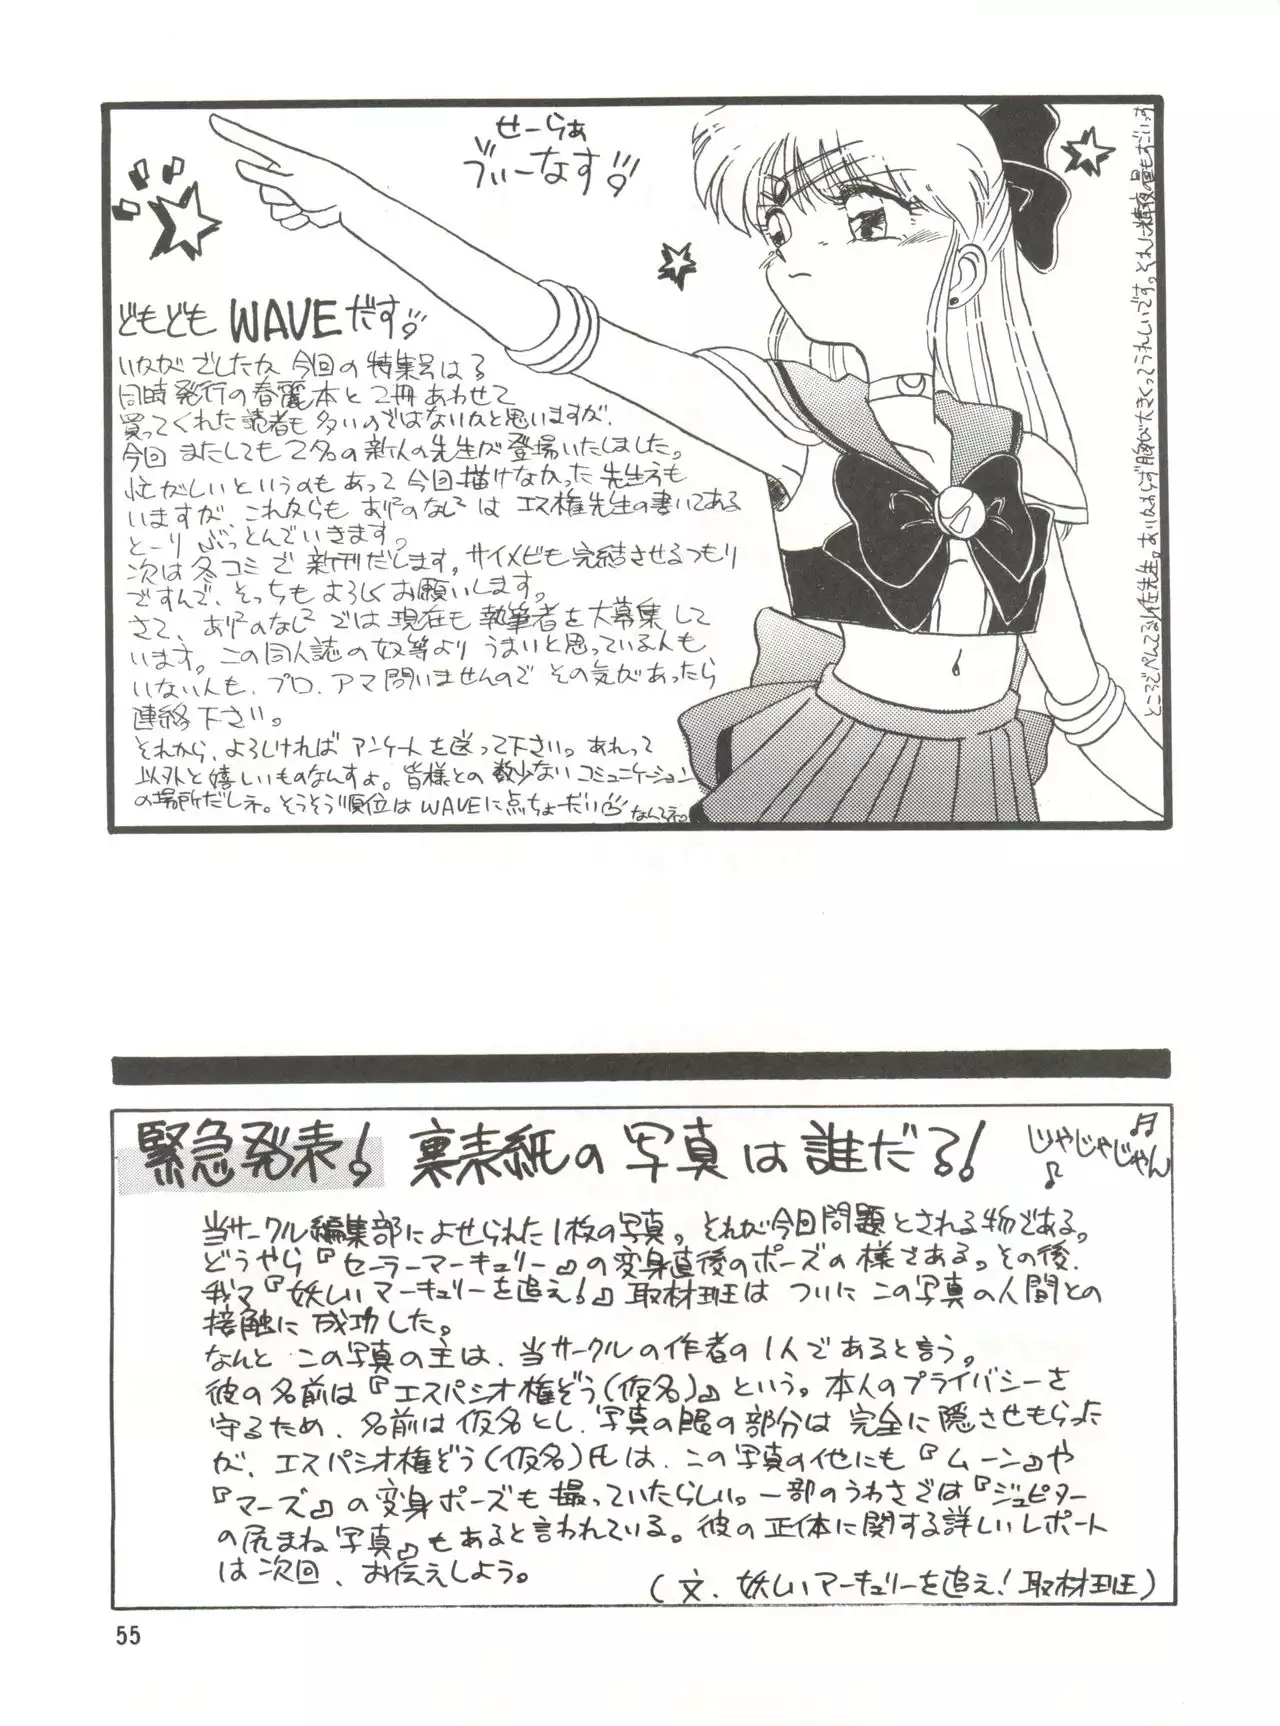 せーらぁ
ぶぃーなす!!
どもども WAVEだす!!
いかがでしたか今回の特集号は?
同時発行の春麗本と2冊あわせて
買ってくれた読者も多いのではないかと思いますが、
今回またしても2名の新人の先生が登場いたしました。
忙がしいというのもあって今回描けなかった先生方も
いますが、これからも ありすのなしっ は エス権先生の書いてある
とーり ぶっとんでいきます。
次は冬コミで新刊だします。サイメビも完結させるつもり
ですんで、そっちもよろしくお願いします。
さて、では現在も執筆者を大募集して
います。この同人誌の奴等よりうまいと思っている人も
いない人も、プロ、アマ問いませんのでその気があったら
連絡下さい。
それから、よろしければアンケートを送って下さい。あれって
以外と嬉しいものなんすよ。皆様との数少ないコミュニケーション
の場所だしネ。そうそう順位はWAVEに点ちょーだい なんてネ。
ところでぺんてる所在先生。ありがとう胸が大きくってうれしいです。それに精夜の量もすごいっす
緊急発表! 裏表紙の写真は誰だろ!
じゃじゃじゃん
当サークル編集部によせられた1枚の写真。それが今回問題とされる物である。
どうやら『セーラーマーキュリー』の変身直後のポーズの様さある。その後、
我マ『妖しいマーキュリーを追え!』取材班は ついに この写真の人間との
接触に成功した。
なんと この写真の主は、当サークルの作者の1人であると言う。
彼の名前は『エスパシオ権ぞう(仮名)』という。本人のプライバシーを
守るため、名前は仮名とし、写真の眼の部分は完全に隠させもらった
が、エスパシオ権ぞう(仮名)氏は、この写真の他にも『ムーン』や
『マーズ』の変身ポーズも撮っていたらしい。一部のうわさでは『ジュピター
の尻まね写真』もあると言われている。彼の正体に関する詳しいレポート
は次回、お伝えしよう。
(文、妖しいマーキュリーを追え!取材班)
55